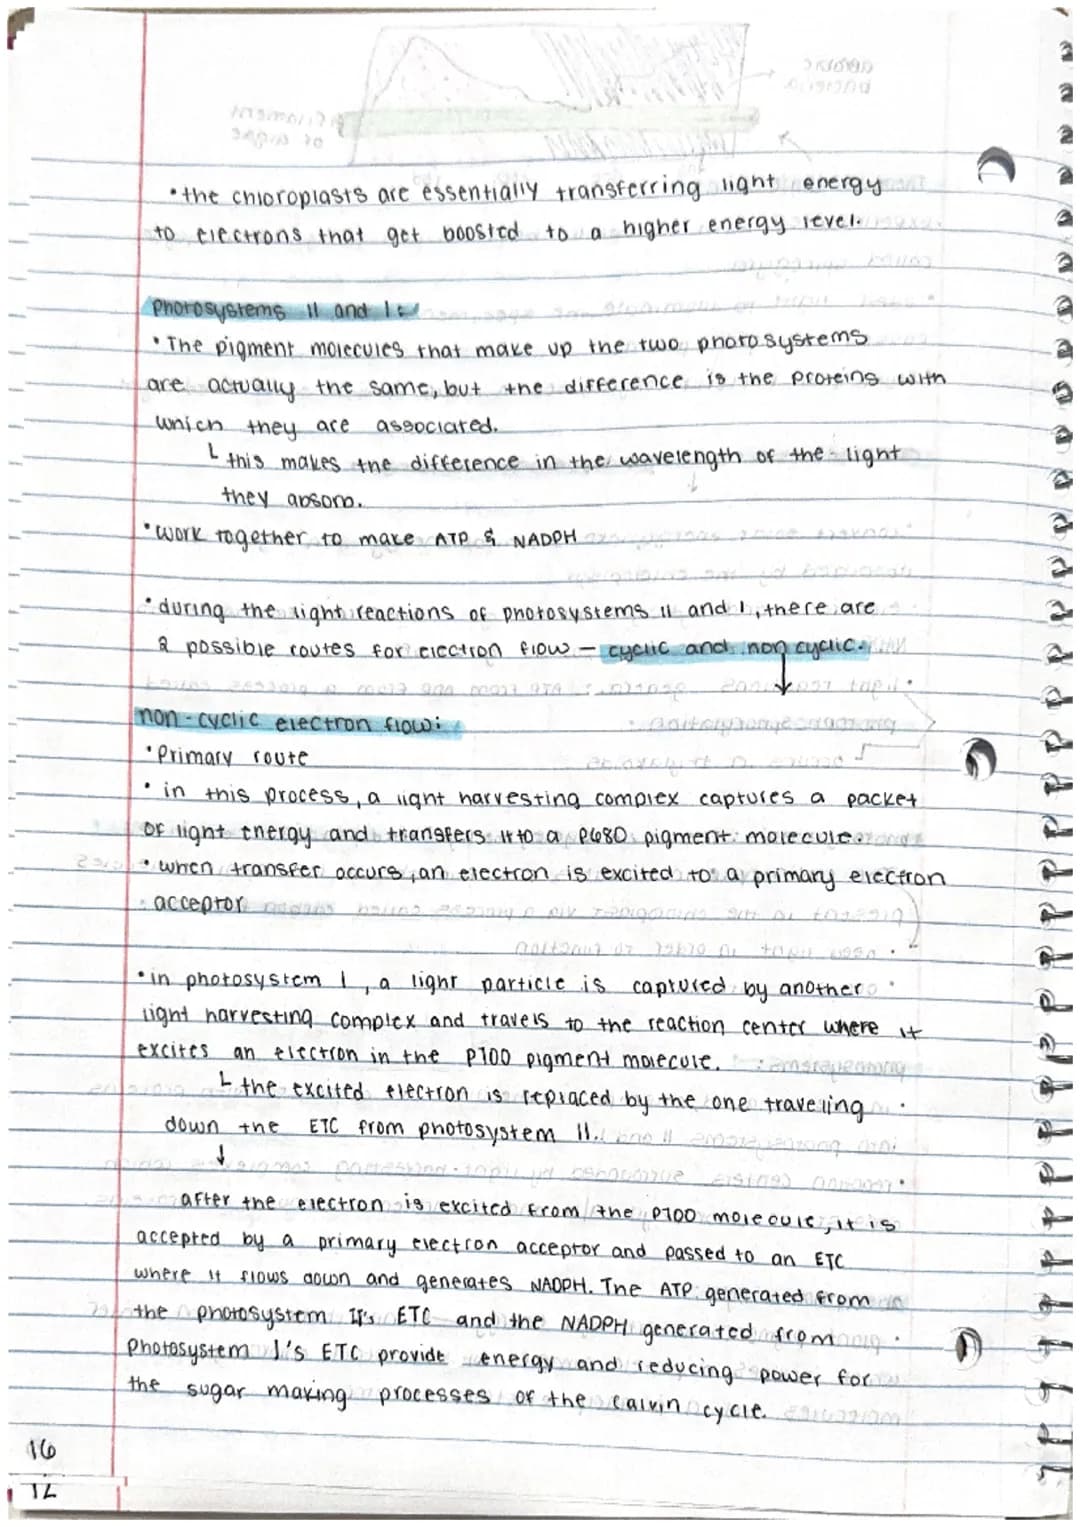 •the chloroplasts are essentially transferring light energy
to electrons that get boosted to a higher energy level.
Photosystems II and I:
•The pigment molecules that make up the two photosystems
are actually the same, but the difference is the proteins with
which they are associated.
└ this makes the difference in the wavelength of the light
they absorb.
•work together to make ATP & NADPH
•during the light reactions of photosystems II and I, there are
2 possible routes for electron flow — cyclic and non cyclic.
non-cyclic electron flow:
•Primary route
•in this process, a light harvesting complex captures a packet
of light energy and transfers it to a P680 pigment molecule.
•when transfer occurs, an electron is excited to a primary electron
acceptor
•in photosystem I, a light particle is captured by another
light harvesting complex and travels to the reaction center where it
excites an electron in the P700 pigment molecule.
└ the excited electron is replaced by the one traveling
down the ETC from photosystem II.
↓
after the electron is excited from the P700 molecule, it is
accepted by a primary electron acceptor and passed to an ETC
where it flows down and generates NADPH. The ATP generated from
the photosystem II's ETC and the NADPH generated from
Photosystem I's ETC provide energy and reducing power for
the sugar making processes of the calvin cycle.
16